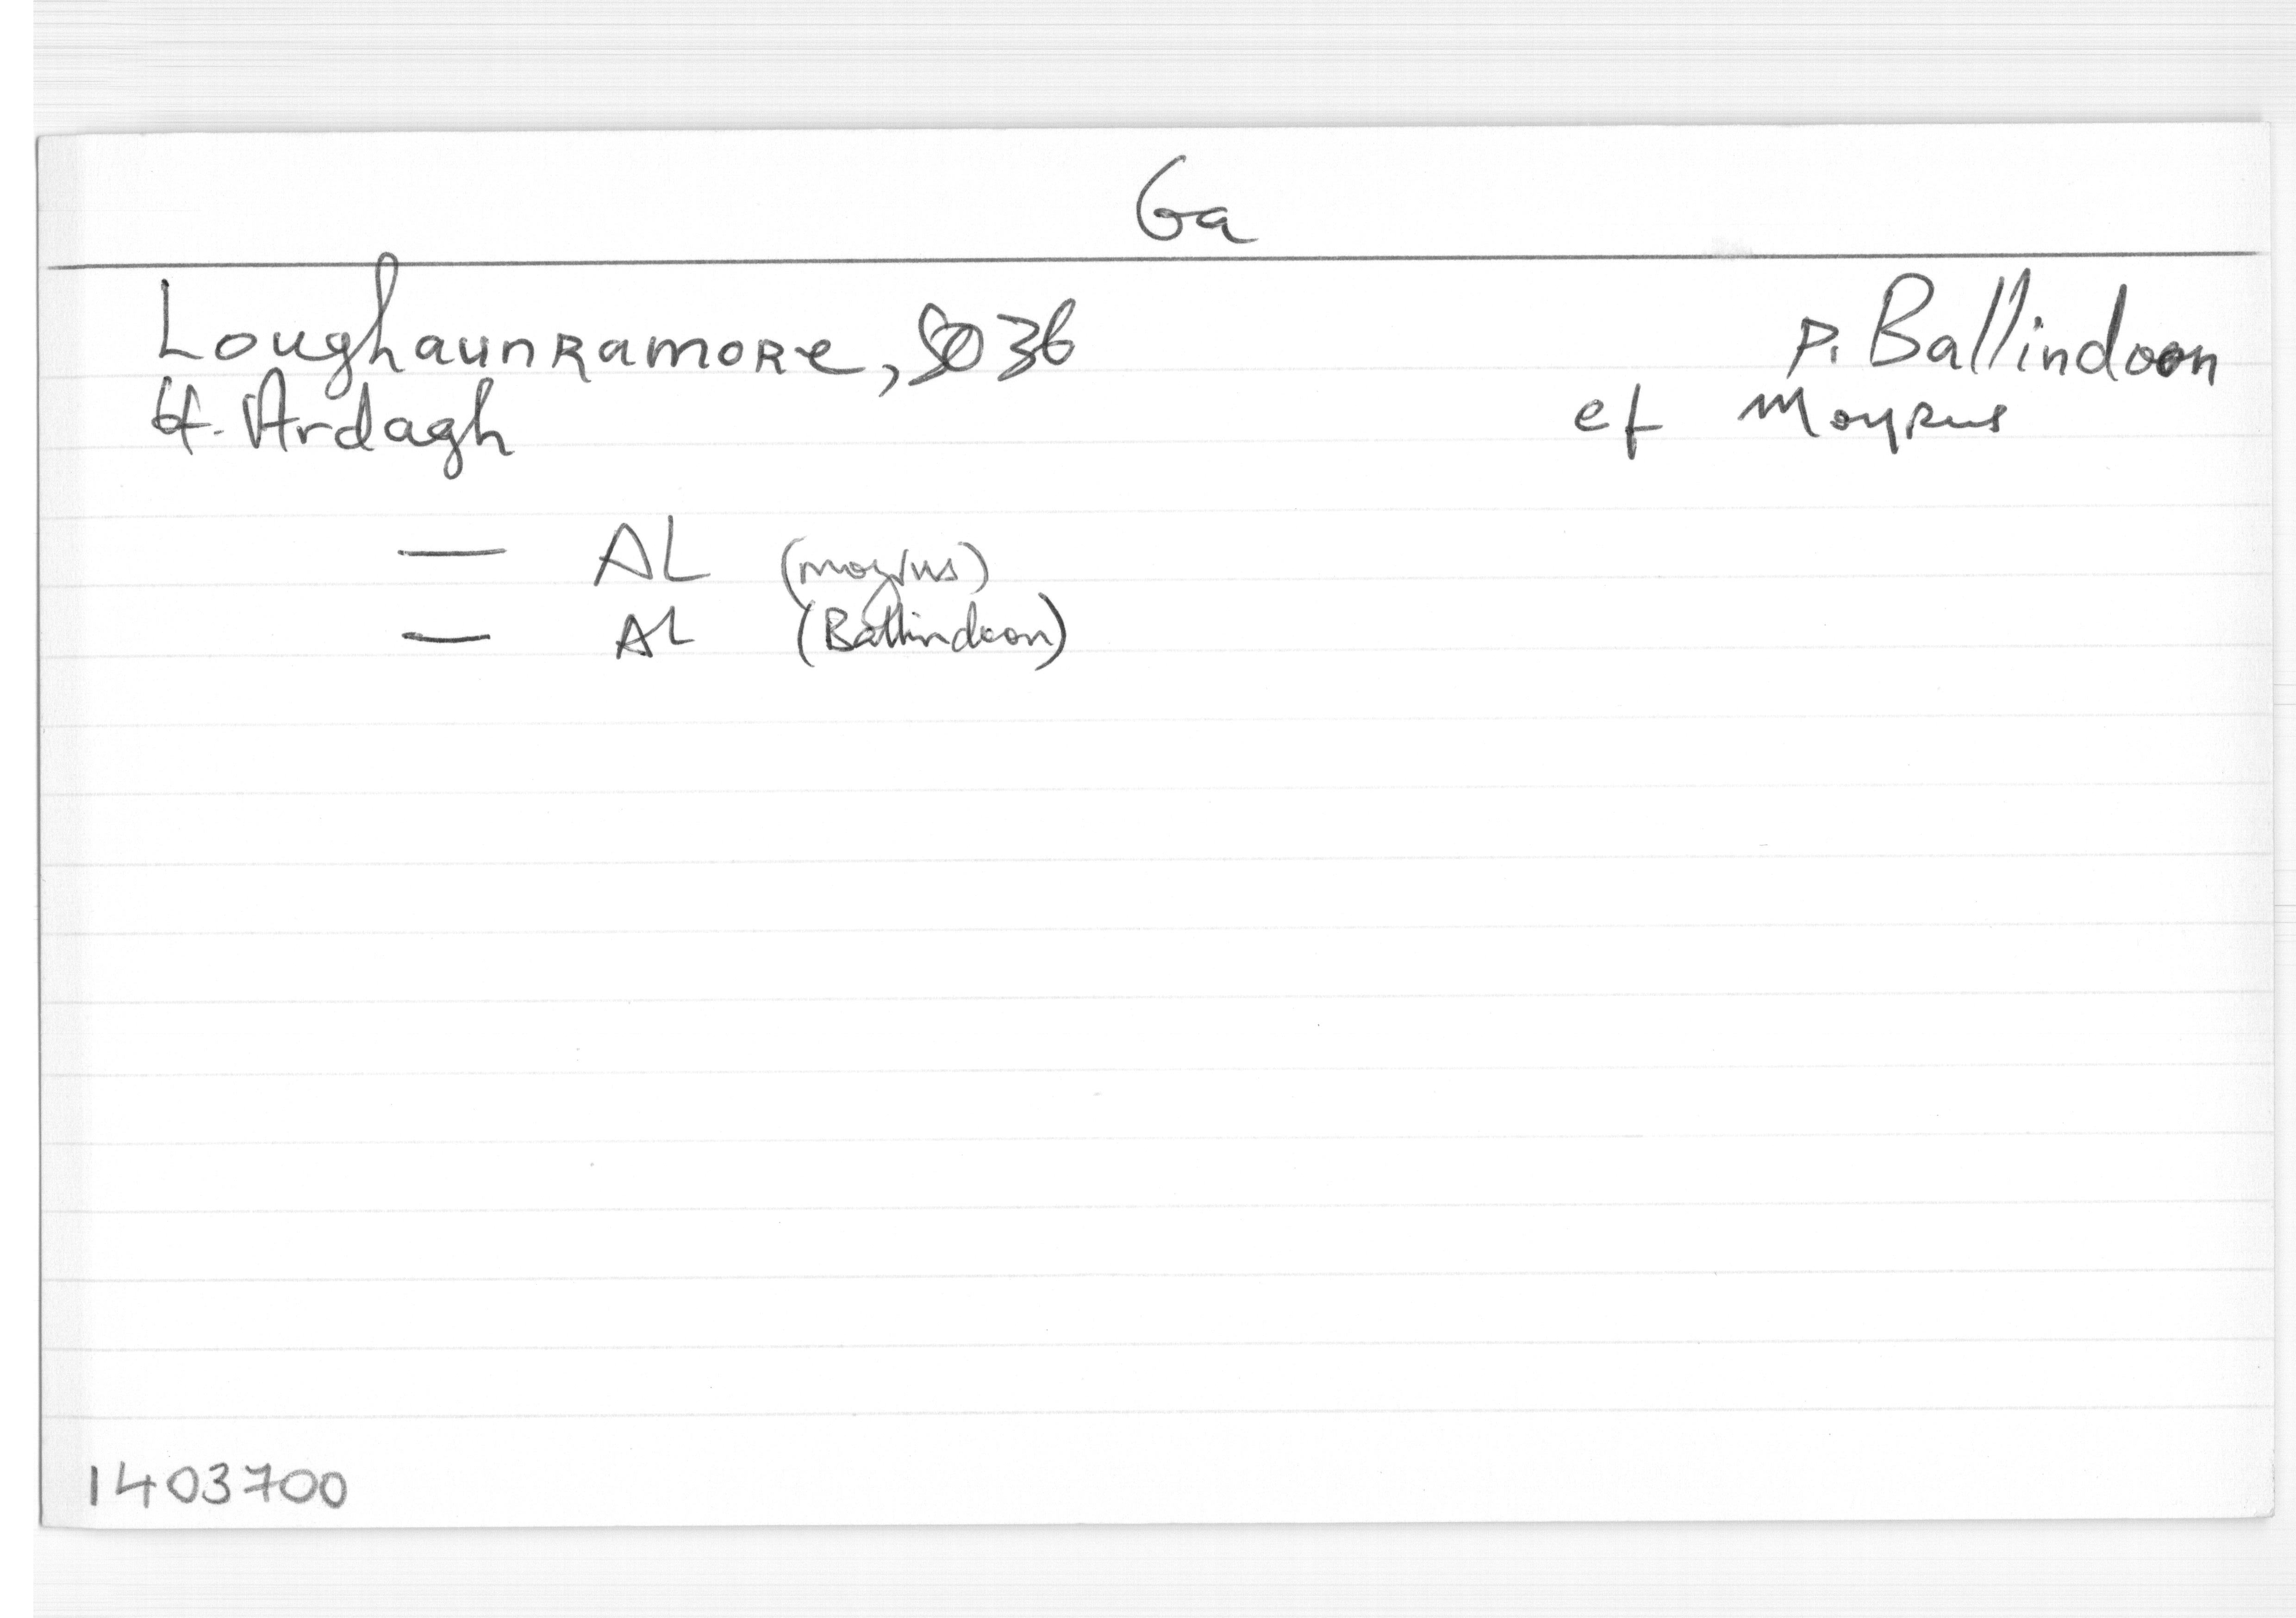 Ga
Loughaunramore, SO 36 p. Ballindoon
bf. Ardagh et Moyrus
— AL (Moyrus)
— AL (Ballindoon)
1403700